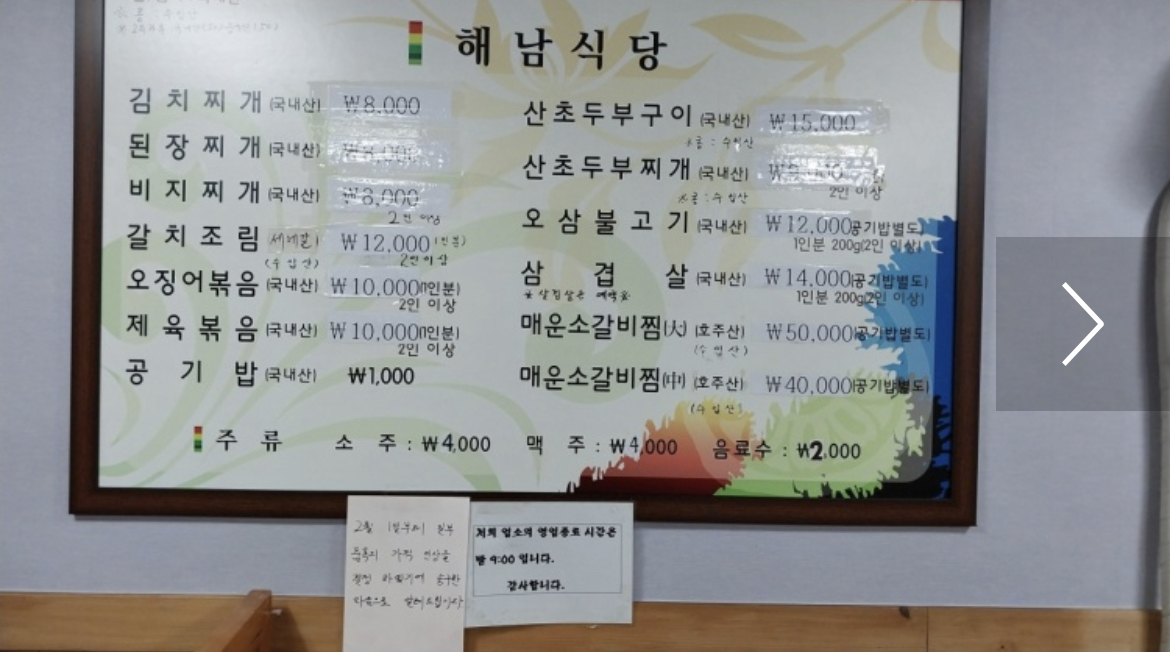 해남식당
김치찌개 (국내산) ₩8,000
된장찌개 (국내산) ₩8,000
비지찌개 (국내산) ₩8,000
2인 이상
갈치조림 (세네갈) ₩12,000 (1인분)
(수입산) 2인이상
오징어볶음 (국내산) ₩10,000(1인분)
2인 이상
제육볶음 (국내산) ₩10,000(1인분)
2인 이상
공기밥 (국내산) ₩1,000
산초두부구이 (국내산) ₩15,000
※콩 : 수입산
산초두부찌개 (국내산) ₩9,000
※콩 : 수입산 2인 이상
오삼불고기 (국내산) ₩12,000(공기밥별도)
1인분 200g(2인 이상)
삼겹살 (국내산) ₩14,000(공기밥별도)
※삼겹살은 1인분 200g(2인 이상)
매운소갈비찜(大) (호주산) ₩50,000(공기밥별도)
(수입산)
매운소갈비찜(中) (호주산) ₩40,000(공기밥별도)
(수입산)
주류 소주 : ₩4,000 맥주 : ₩4,000 음료수 : ₩2,000
2월 1일부터 일부
품목의 가격 인상을
결정 하였기에 송구한
마음으로 알려드립니다
저희 업소의 영업종료 시간은
밤 9:00 입니다.
감사합니다.